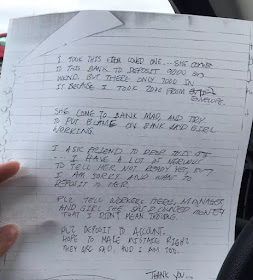 I TOOK THIS FROM LOVED ONE... SHE COMES
TO THIS BANK TO DEPOSIT 9000
BUT THERE ONLY 7000 IN
IT BECAUSE I TOOK 2000 FROM
ENVELOPE.
SHE COME TO BANK MAD, AND TRY
TO PUT BLAME ON BANK AND GIRL
WORKING.
I ASK FRIEND TO DROP THIS OFF
... I HAVE A LOT OF NERVOUS
TO TELL HER, NOT READY YET, BUT
I AM SORRY AND WANT TO
DEPOSIT TO HER.
PLZ TELL WORKERS HERE, MANAGER
AND GIRL SHE MONEY
THAT I DIDN'T MEAN TROUBLE.
PLZ DEPOSIT TO ACCOUNT.
HOPE TO MAKE MISTAKE RIGHT
THEY ARE SAD, AND I AM TOO.
THANK YOU...